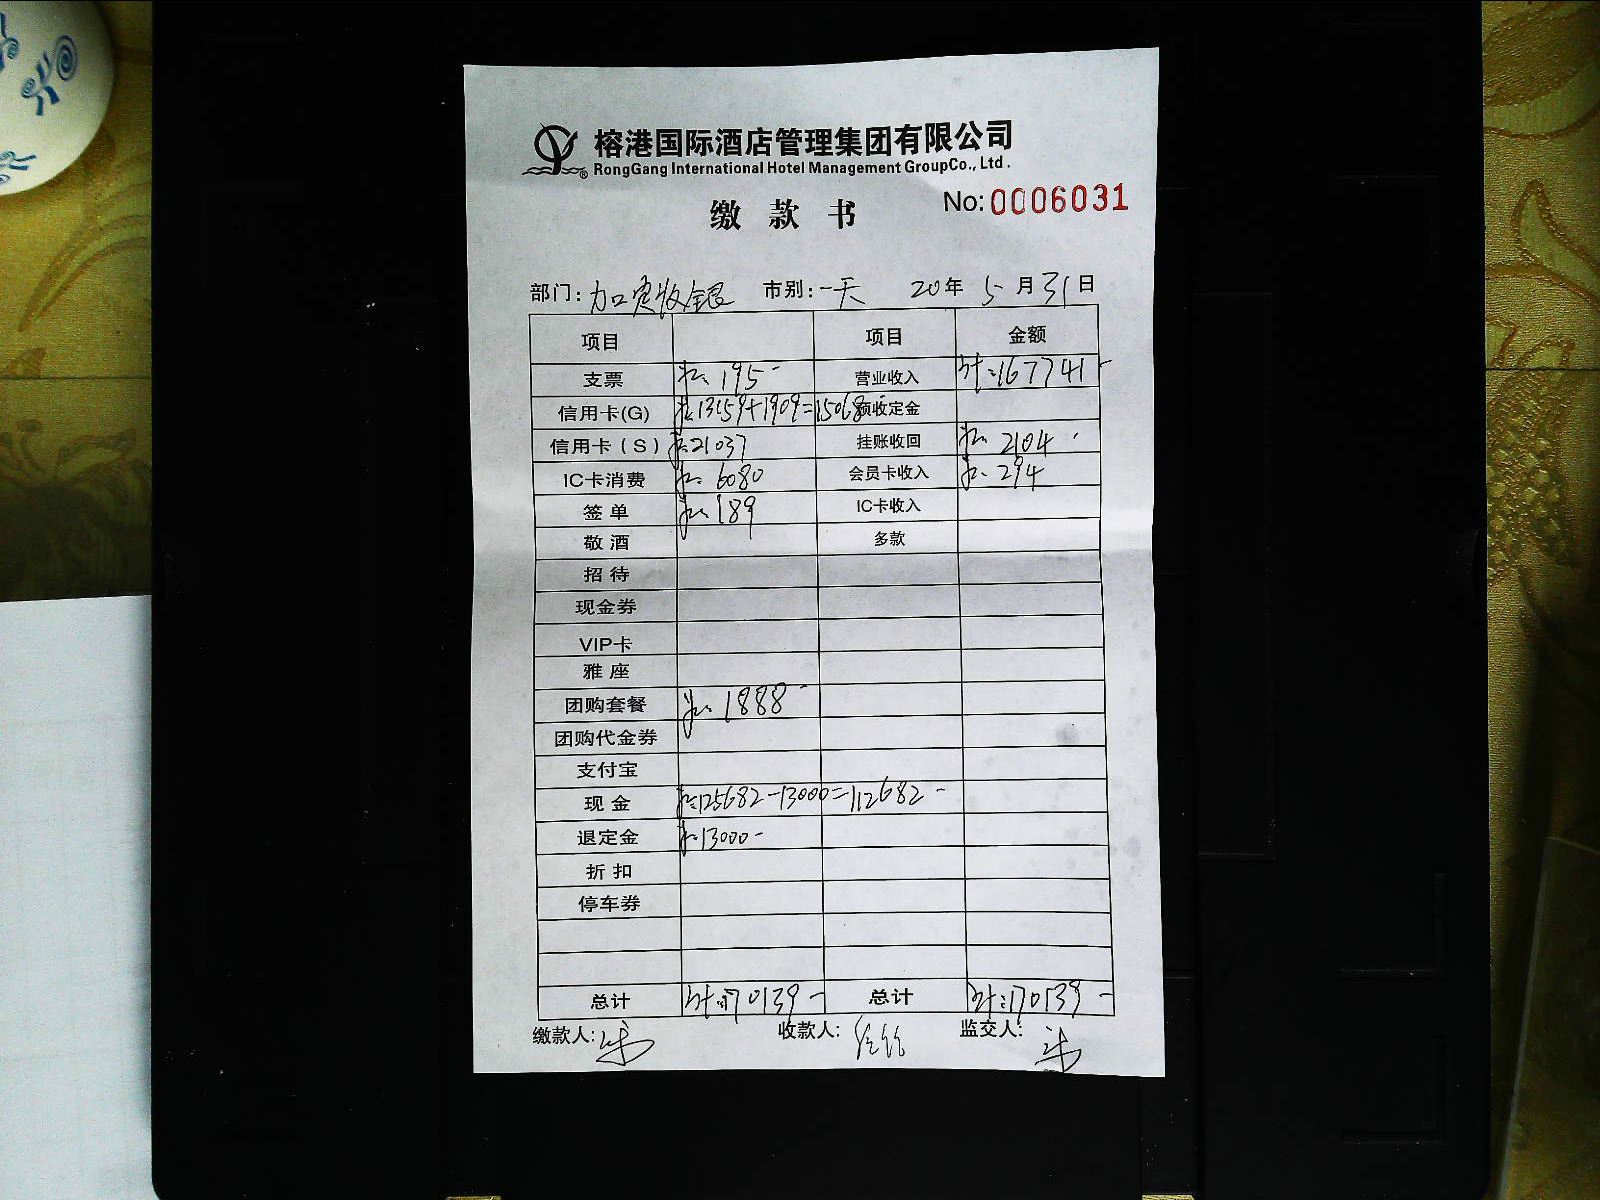 榕港国际酒店管理集团有限公司
RongGang International Hotel Management GroupCo., Ltd.
No:0006031
缴 款 书
部门: 收银 市别:一天 20年 5 月 31日
项目 项目 金额
支票 195- 营业收入 计:167741-
信用卡(G) 13159+1909=15068 预收定金
信用卡(S) 21037 挂账收回 2104-
IC卡消费 6080 会员卡收入 294
签 单 189 IC卡收入
敬 酒 多款
招 待
现金券
VIP卡
雅 座
团购套餐 1888-
团购代金券
支付宝
现 金 125682-13000=112682-
退定金 13000-
折 扣
停车券
总计 计:170139- 总计 计:170139-
缴款人: 收款人: 监交人: